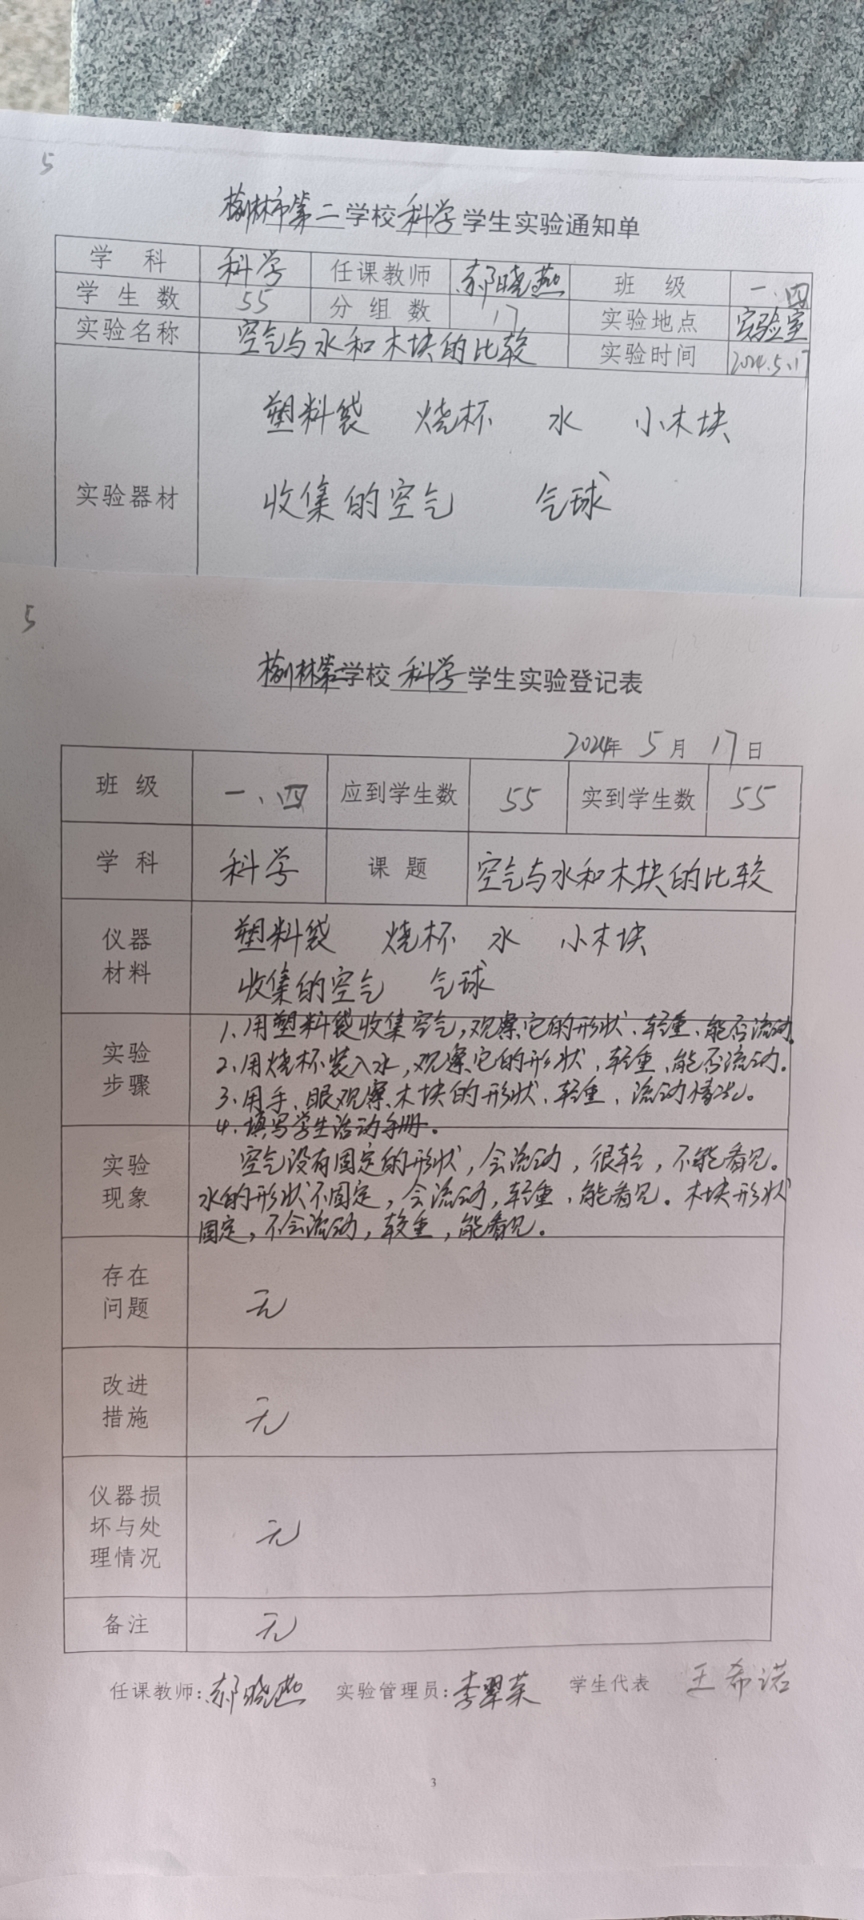 5
榆林市第二学校科学学生实验通知单
学科 科学 任课教师 郝晓燕 班级 一、四
学生数 55 分组数 17 实验地点 实验室
实验名称 空气与水和木块的比较 实验时间 2024.5.17
塑料袋 烧杯 水 小木块
实验器材 收集的空气 气球
5
榆林第二学校科学学生实验登记表
2024年5月17日
班级 一、四 应到学生数 55 实到学生数 55
学科 科学 课题 空气与水和木块的比较
仪器材料 塑料袋 烧杯 水 小木块
收集的空气 气球
实验步骤 1.用塑料袋收集空气,观察它的形状、轻重、能否流动.
2.用烧杯装入水,观察它的形状,轻重、能否流动.
3.用手、眼观察木块的形状、轻重、流动情况。
4.填写学生活动手册。
实验现象 空气没有固定的形状,会流动,很轻,不能看见。
水的形状不固定,会流动,较重,能看见。木块形状
固定,不会流动,较重,能看见。
存在问题 无
改进措施 无
仪器损坏与处理情况 无
备注 无
任课教师:郝晓燕 实验管理员:李翠荣 学生代表 王希诺
3